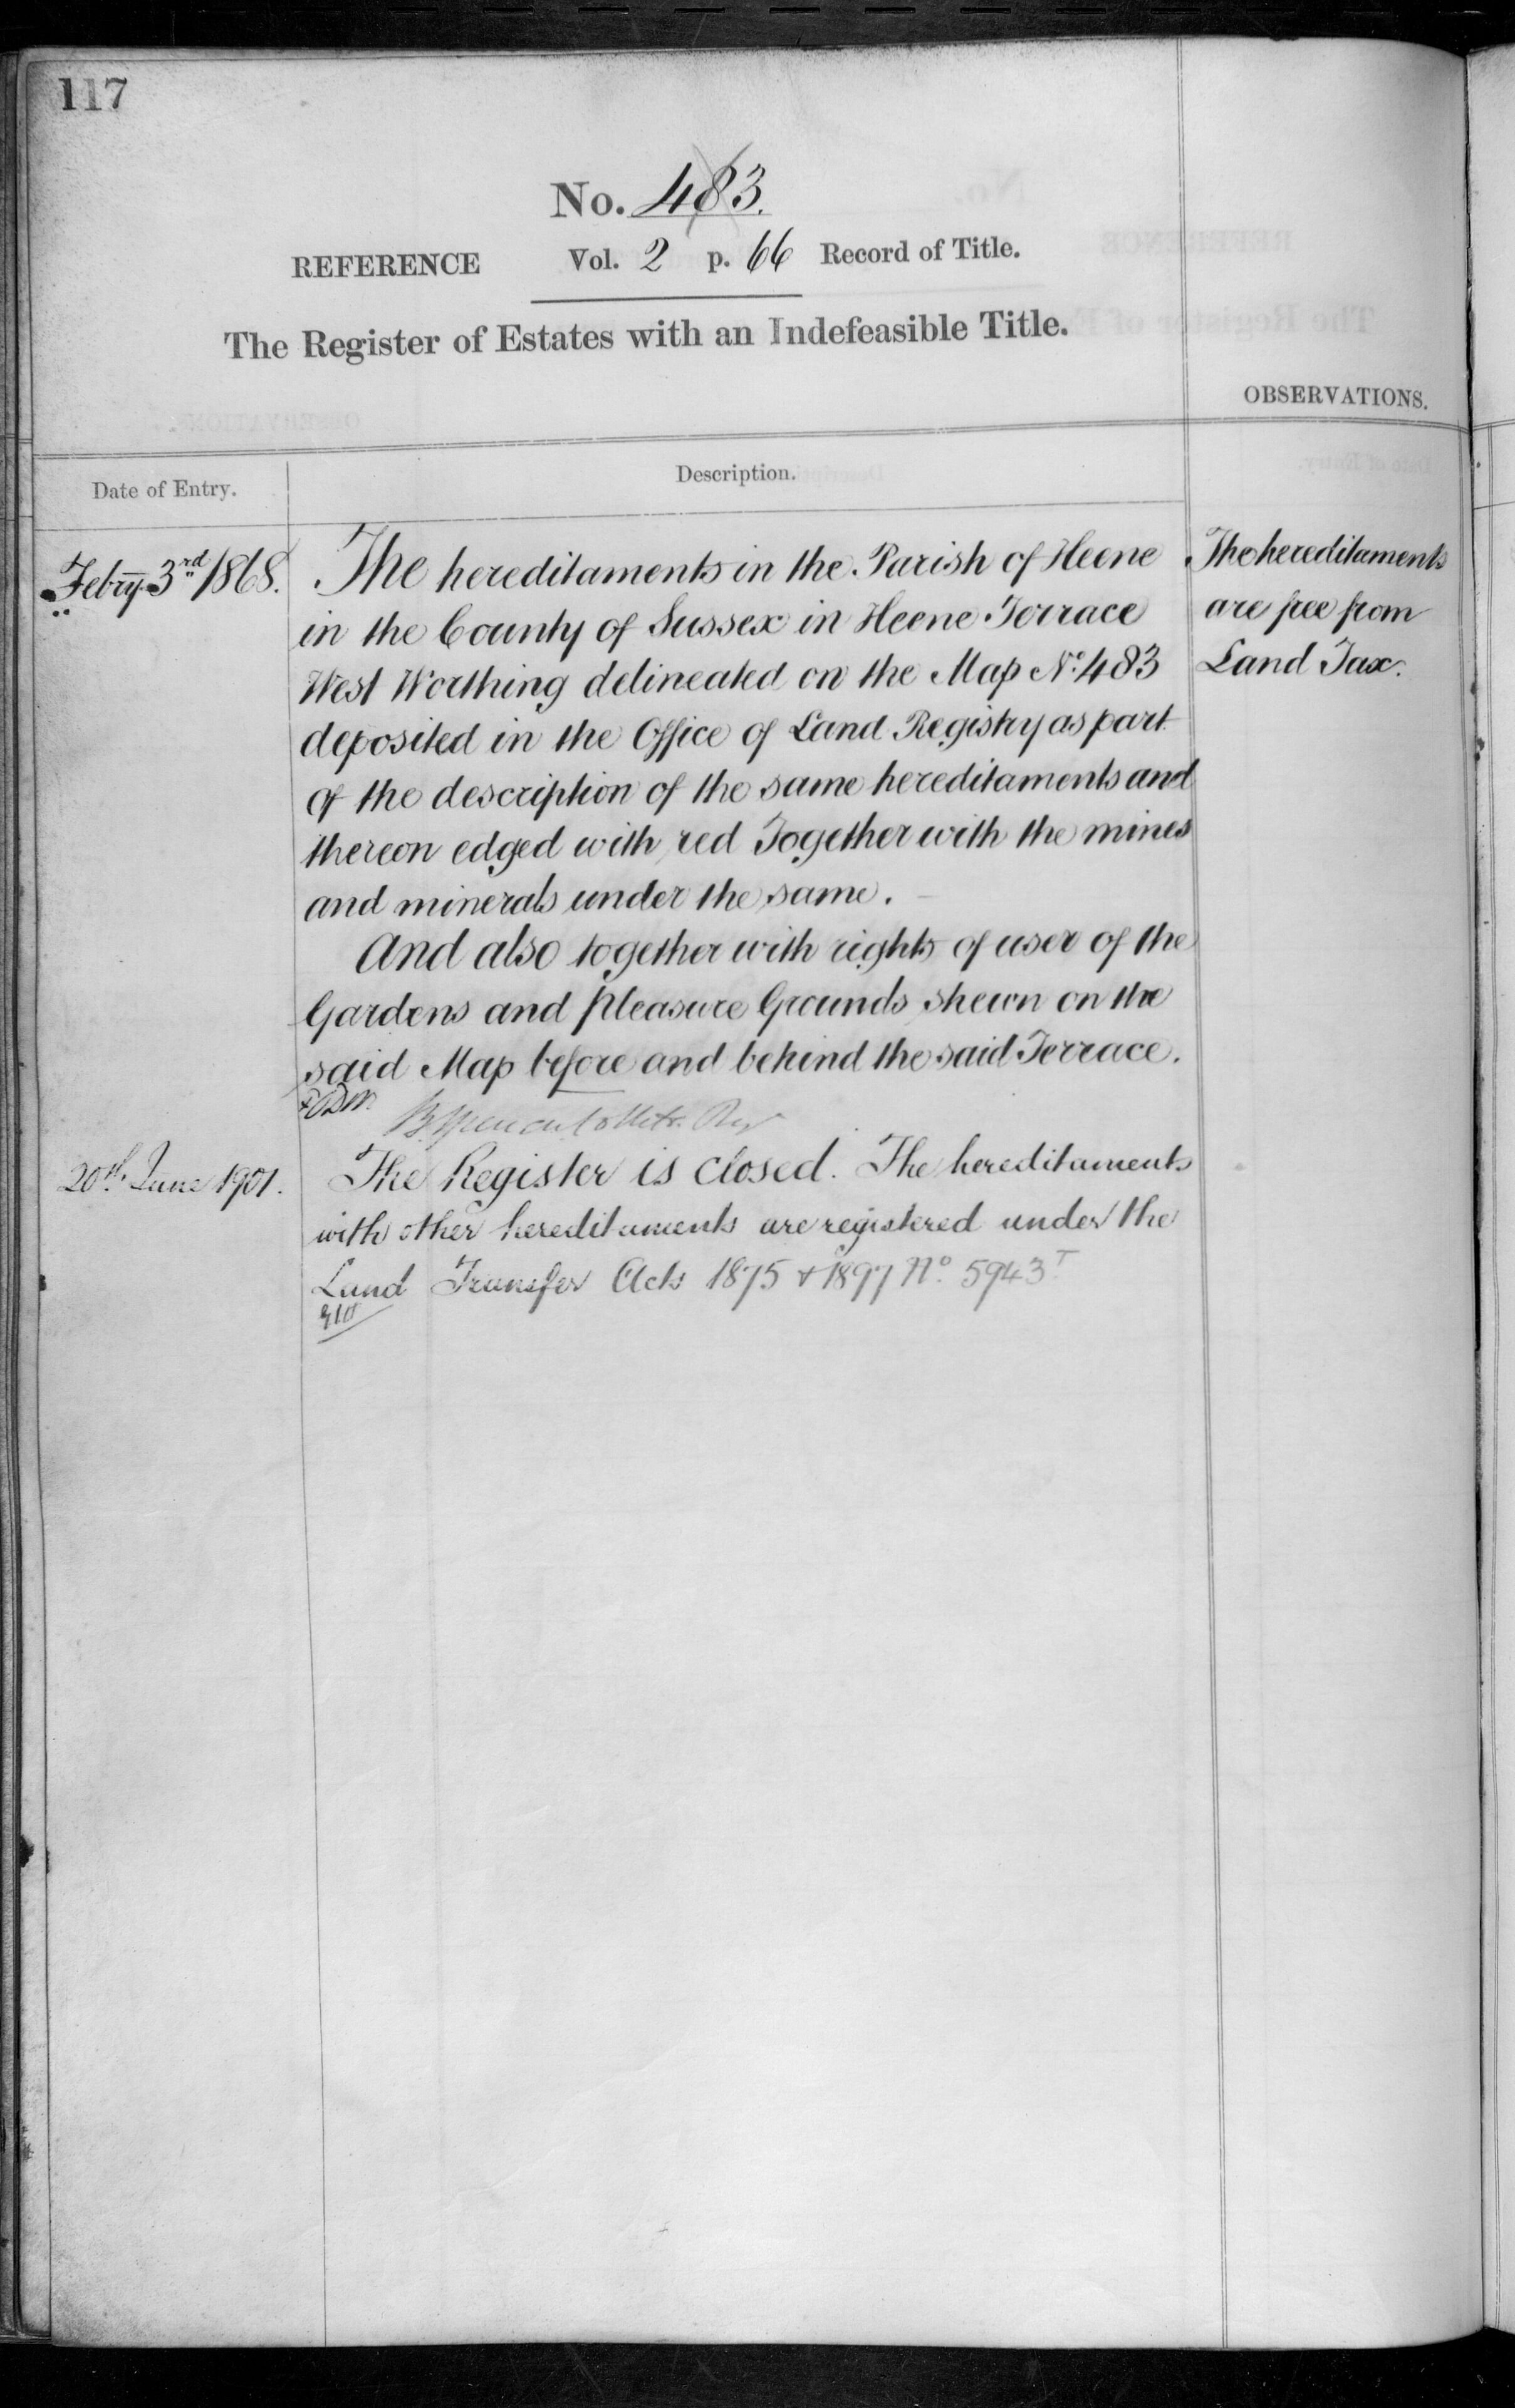 117
No. 483.
REFERENCE Vol. 2 p. 66 Record of Title.
The Register of Estates with an Indefeasible Title.
OBSERVATIONS.
Date of Entry.
Description.
Febry. 3rd 1868.
The hereditaments in the Parish of Heene
in the County of Sussex in Heene Terrace
West Worthing delineated on the Map No. 483
deposited in the Office of Land Registry as part
of the description of the same hereditaments and
thereon edged with red Together with the mines
and minerals under the same.
And also together with rights of user of the
Gardens and Pleasure Grounds shewn on the
said Map before and behind the said Terrace.
The hereditaments
are free from
Land Tax.
20th June 1901.
The Register is closed. The hereditaments
with other hereditaments are registered under the
Land Transfer Acts 1875 & 1897 No. 5943T